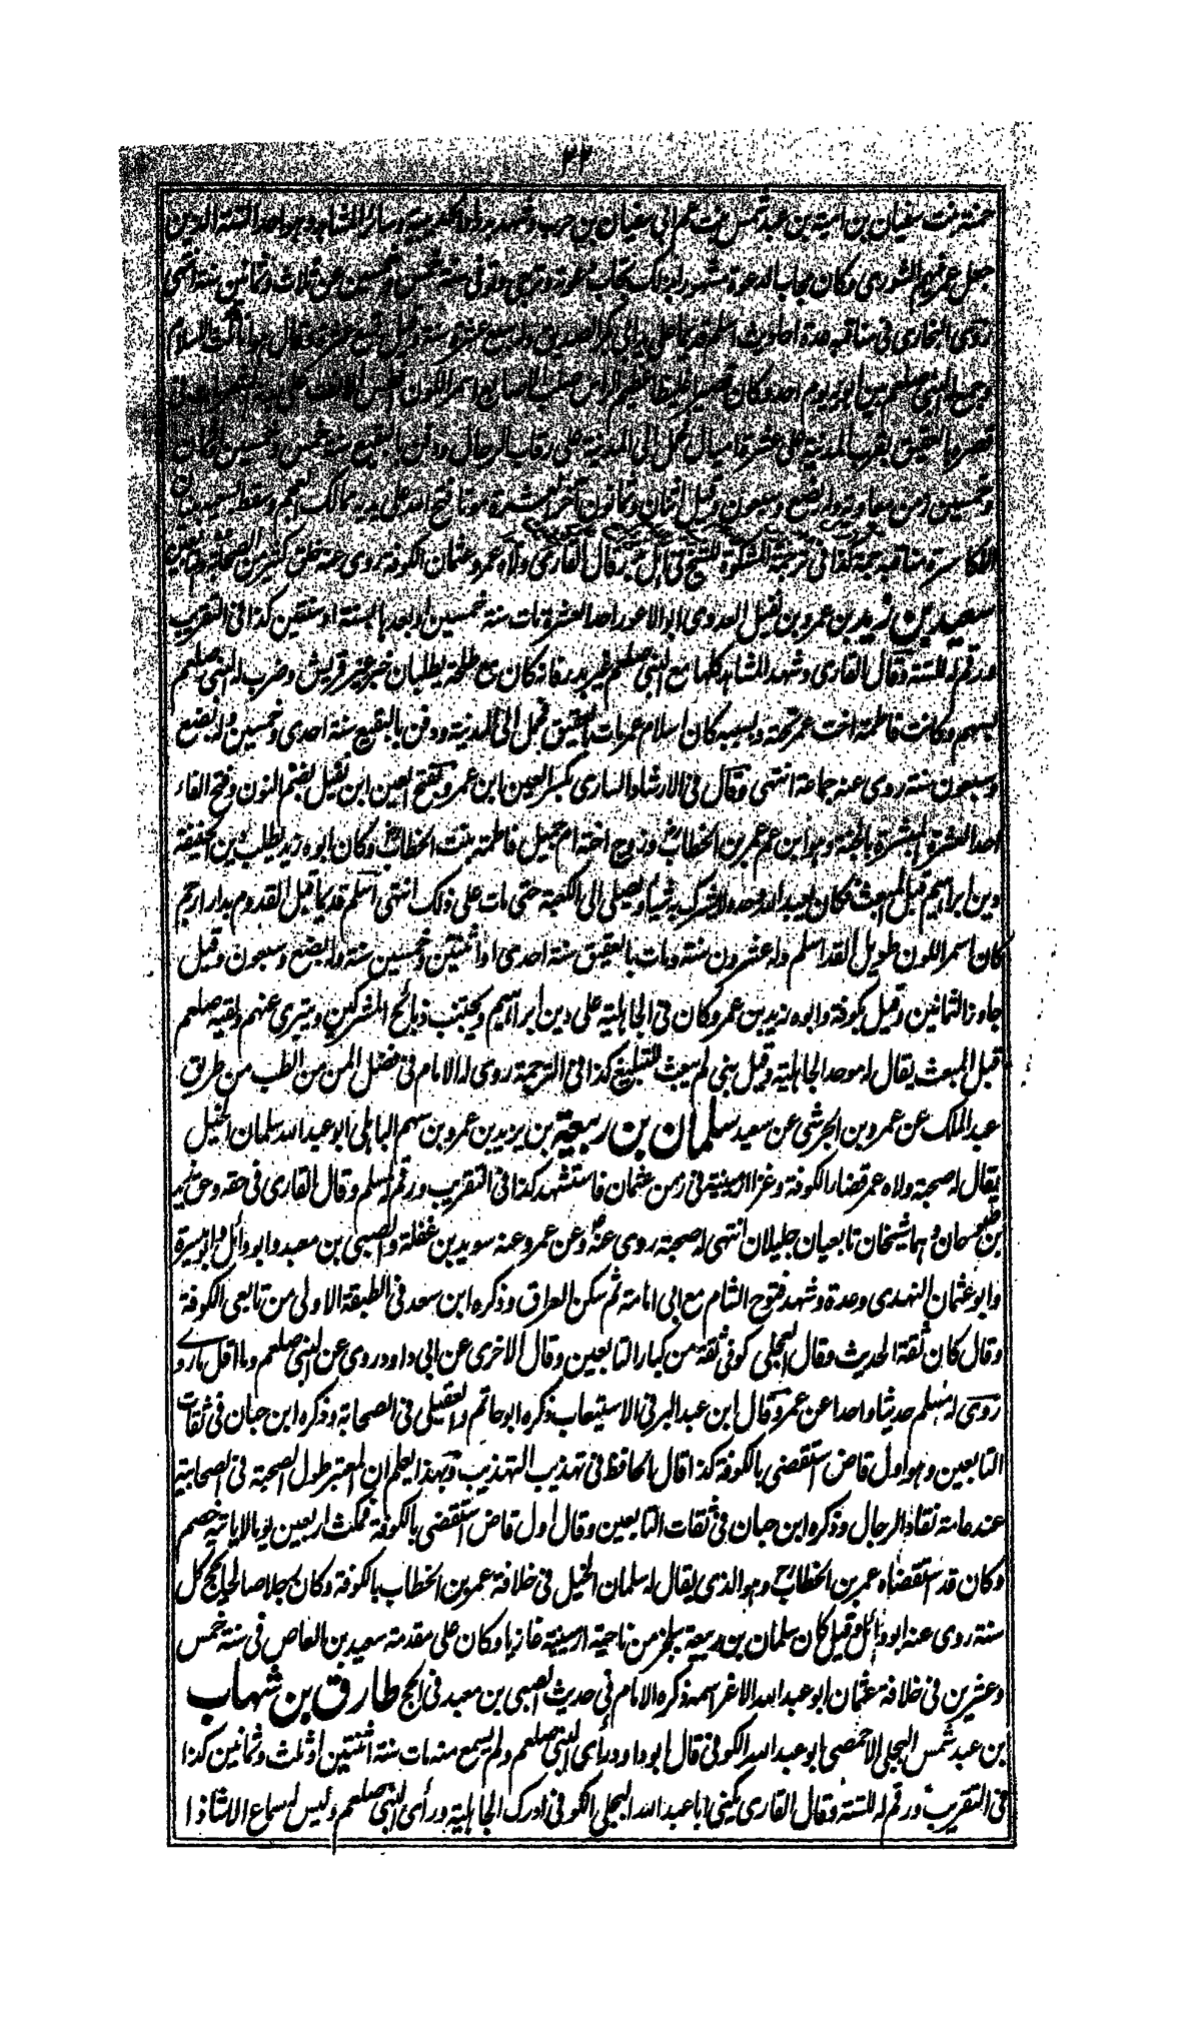 ٣٢
حمنة بنت سفيان بن امية بن عبد شمس بنت عم ابي سفيان بن حرب وشهد بدرا والحديبية وسائر المشاهد وهو احد الستة الذين
جعل عمر فيهم الشورى وكان مجاب الدعوة مشهورا بذلك تخاف دعوته وترجى وتوفى سنة خمس وخمسين عن ثلاث وثمانين سنة انتهى
روى البخارى فى مناقبه عدة احاديث اسلم قديما على يد ابى بكر الصديق وهو ابن سبع عشرة سنة وقيل تسع عشرة وقال انا ثلث الاسلام
وجمع النبى صلعم بين ابويه يوم احد وكان قصيرا غليظا عظيم الراس الاصابع اسمر اللون افطس الانف مات فى
قصره بالعقيق بقرب المدينة على عشرة اميال حمل الى المدينة على رقاب الرجال ودفن بالبقيع سنة خمس وخمسين
وخمسين زمن معاوية وله بضع وسبعون وقيل اثنان وثمانون آخر العشرة موتا فتح الله على يديه ممالك العجم وسقط
الاكاسرة ومناقبه جمة كذا فى ترجمة المشكوة للشيخ وقال القارى ولاه عمر وعثمان الكوفة روى عنه خلق كثير من الصحابة والتابعين
سعيد بن زيد بن عمرو بن نفيل العدوى ابو الاعور احد العشرة مات سنة خمسين او بعدها بسنة او سنتين كذا فى التقريب
ورقم له للستة وقال القارى وشهد المشاهد كلها مع النبى صلعم غير بدر فانه كان مع طلحة يطلبان خبر عير قريش وضرب له النبى صلعم
بسهم وكانت فاطمة اخت عمر تحته وبسببه كان اسلام عمر مات بالعقيق فحمل الى المدينة ودفن بالبقيع سنة احدى وخمسين وله بضع
وسبعون سنة روى عنه جماعة انتهى وقال فى الارشاد السارى بكسر العين ابن عمرو بفتح العين ابن نفيل بضم النون وفتح الفاء
احد العشرة المبشرة بالجنة وهو ابن عم عمر بن الخطاب وزوج اخته ام جميل فاطمة بنت الخطاب وكان ابوه زيد يطلب دين الحنيفة
دين ابراهيم قبل المبعث فكان يعبد الله وحده لا يشرك به شيئا ويصلى الى الكعبة حتى مات على ذلك انتهى اسلم قديما قبل القدوم بدار ارقم
كان اسمر اللون طويل القد اسلم وله عشرون سنة ومات بالعقيق سنة احدى او اثنتين وخمسين سنة وله بضع وسبعون وقيل
جاوز الثمانين وقيل بكوفة وابوه زيد بن عمرو كان فى الجاهلية على دين ابراهيم ويجتنب ذبائح المشركين ويتبرى عنهم ولقيه صلعم
قبل المبعث يقال له موحد الجاهلية وقيل نبى لم يبعث للتبليغ كذا فى الترجمة روى له الامام فى فضل المن من الطب من طريق
عبد الملك عن عمرو بن الجرشى عن سعيد سلمان بن ربيعة بن يزيد بن عمرو بن سهم الباهلى ابو عبد الله سلمان الخيل
يقال له صحبة ولاه عمر قضاء الكوفة وغزا ارمينية فى زمن عثمان فاستشهد كذا فى التقريب ورقم له مسلم وقال القارى فى حقه وحق
بن صوحان وهما شيخان تابعيان جليلان انتهى له صحبة روى عنه وعن عمر وعنه سويد بن غفلة والصبى بن معبد وابو وائل وابو ميسرة
وابو عثمان النهدى وعدة وشهد فتوح الشام مع ابى امامة ثم سكن العراق وذكره ابن سعد فى الطبقة الاولى من تابعى الكوفة
وقال كان ثقة الحديث وقال العجلى كوفى ثقة من كبار التابعين وقال الآخرى عن ابى داود روى عن النبى صلعم وما اقل ما روى
روى له مسلم حديثا واحدا عن عمر وقال ابن عبد البر فى الاستيعاب ذكره ابو حاتم والعقيلى فى الصحابة وذكره ابن حبان فى ثقات
التابعين وهو اول قاض استقضى بالكوفة كذا قال الحافظ فى تهذيب التهذيب وبهذا يعلم ان المعتبر طول الصحبة فى الصحابية
عند عامة نقاد الرجال وذكره ابن حبان فى ثقات التابعين وقال اول قاض استقضى بالكوفة فمكث اربعين يوما لا ياتيه خصم
وكان قد استقضاه عمر بن الخطاب وهو الذى يقال له سلمان الخيل فى خلافة عمر بن الخطاب بالكوفة وكان رجلا صالحا يحج كل
سنة روى عنه ابو وائل وقيل كان سلمان بن ربيعة ببلنجر من ناحية ارمينية غازيا وكان على مقدمة سعيد بن العاص فى سنة خمس
وعشرين فى خلافة عثمان ابو عبد الله الاغر اسمه ذكره الامام فى حديث الصبى بن معبد فى الحج طارق بن شهاب
ابن عبد شمس البجلى الاحمصى ابو عبد الله الكوفى قال ابو داود رأى النبى صلعم ولم يسمع منه مات سنة اثنتين او ثلث وثمانين كذا
فى التقريب ورقم له للستة وقال القارى يكنى ابا عبد الله البجلى الكوفى ادرك الجاهلية ورأى النبى صلعم وليس له سماع الا شاذا